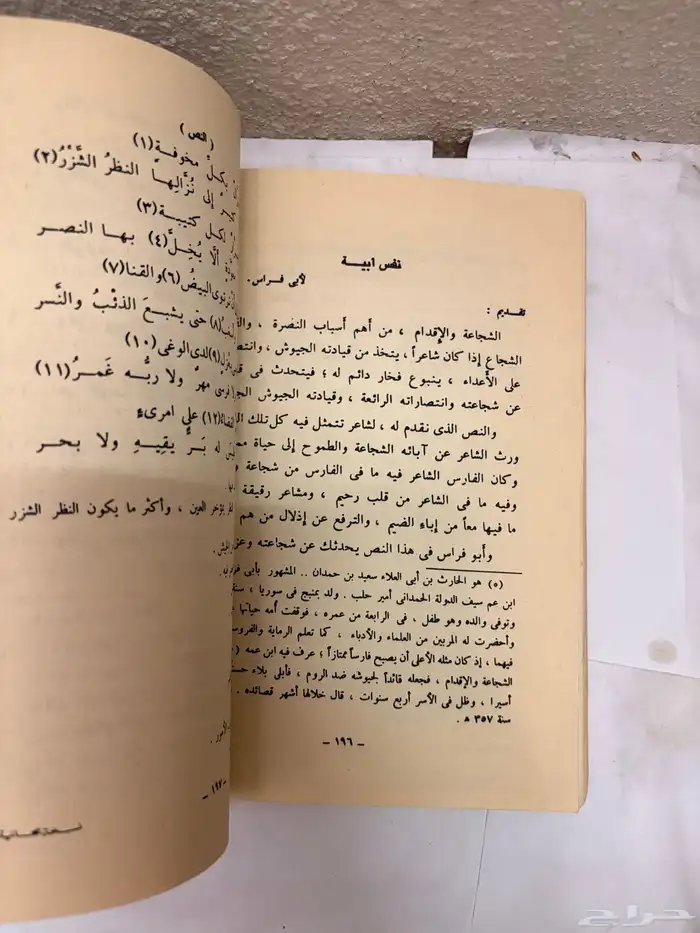 نفس أبية
لأبى فراس .
تقديم :
الشجاعة والإقدام ، من أهم أسباب النصرة ،
الشجاع إذا كان شاعراً ، يتخذ من قيادته الجيوش ،
على الأعداء ، ينبوع فخار دائم له ؛ فيتحدث فى
عن شجاعته وانتصاراته الرائعة ، وقيادته الجيوش
والنص الذى نقدم له ، لشاعر تتمثل فيه كل تلك
ورث الشاعر عن آبائه الشجاعة والطموح إلى حياة
وكان الفارس الشاعر فيه ما فى الفارس من شجاعة
وفيه ما فى الشاعر من قلب رحيم ، ومشاعر رقيقة
ما فيها معاً من إباء الضيم ، والترفع عن إذلال من هم
وأبو فراس فى هذا النص يحدثك عن شجاعته
(٥) هو الحارث بن أبى العلاء سعيد بن حمدان .. المشهور بأبى
ابن عم سيف الدولة الحمدانى أمير حلب . ولد بمنبج فى سوريا ، سنة
وتوفى والده وهو طفل ، فى الرابعة من عمره ، فوقفت أمه حياتها
وأحضرت له المربين من العلماء والأدباء ، كما تعلم الرماية
فيهما ، إذ كان مثله الأعلى أن يصبح فارساً ممتازاً ؛ عرف فيه ابن عمه
الشجاعة والإقدام ، فجعله قائداً لجيوشه ضد الروم ، فأبلى بلاء
أسيرا ، وظل فى الأسر أربع سنوات ، قال خلالها أشهر قصائده .
سنة ٣٥٧ ه .
– ١٩٦ –
( النص )
مخوفة(١)
إلى نُزَّالِها النظرُ الشَّزْرُ(٢)
لكل كتيبة(٣)
ألَّا يُخِلَّ(٤) بها النصر
البيضُ(٦)والقنا(٧)
(٨) حتى يشبعَ الذئبُ والنَّسر
(٩)لدى الوغى(١٠)
مهرٌ ولا ربُّه غَمرُ(١١)
(١٢) على امرىءٍ
له بَرٌّ يقيهِ ولا بحر
العين ، وأكثر ما يكون النظر الشزر
– ١٩٧ –
حراج